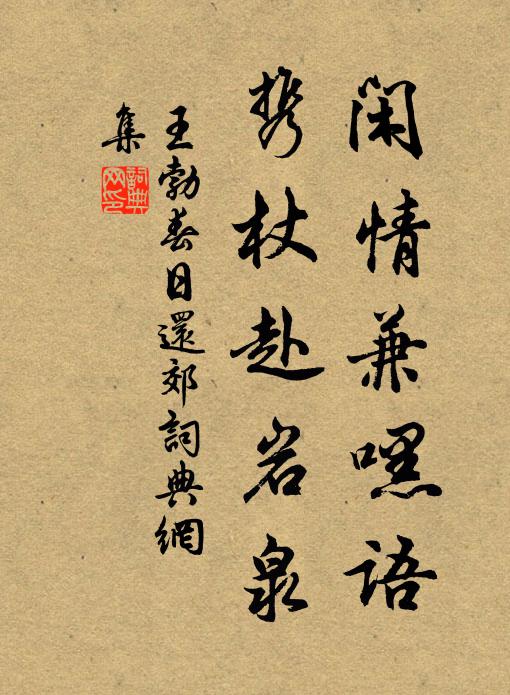 闲情兼嘿语
携杖赴岩泉
王勃春日還郊詞典網
集
詞典網印